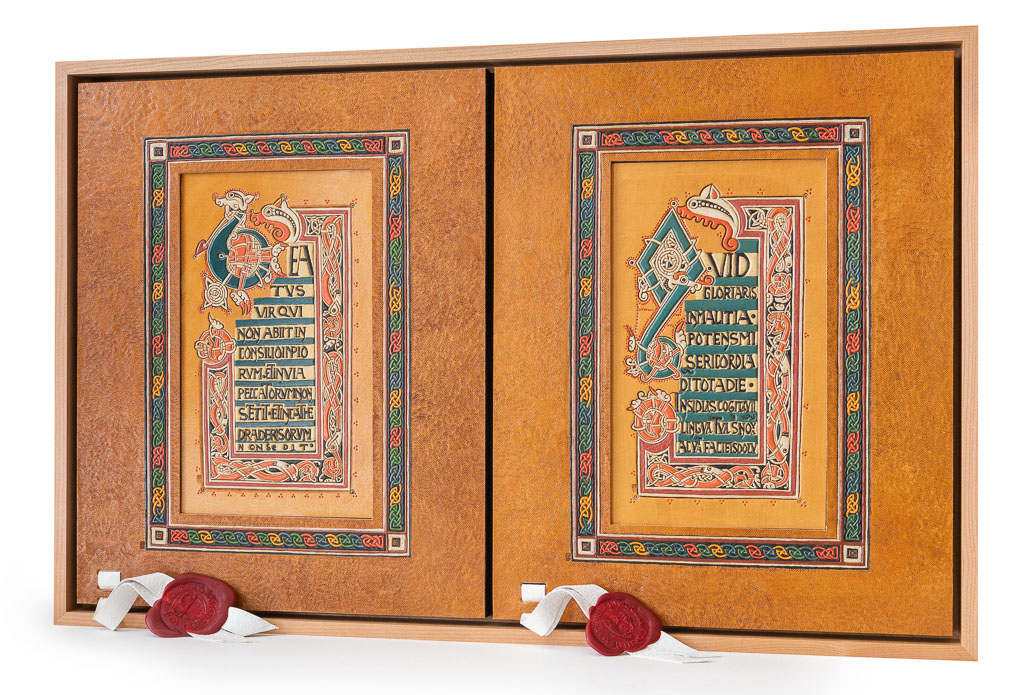 BEA
TVS
VIR QVI
NON ABIIT IN
CONSILIO INPIO
RVM ET IN VIA
PECCATORVM NON
STETIT ET IN CATHE
DRA DERISORVM
NON SEDIT
QVID
GLORIARIS
IN MALITIA
POTENS MI
SERICORDIA
DI TOTA DIE
INSIDIAS COGITAVI
LINGVA TVA SNO